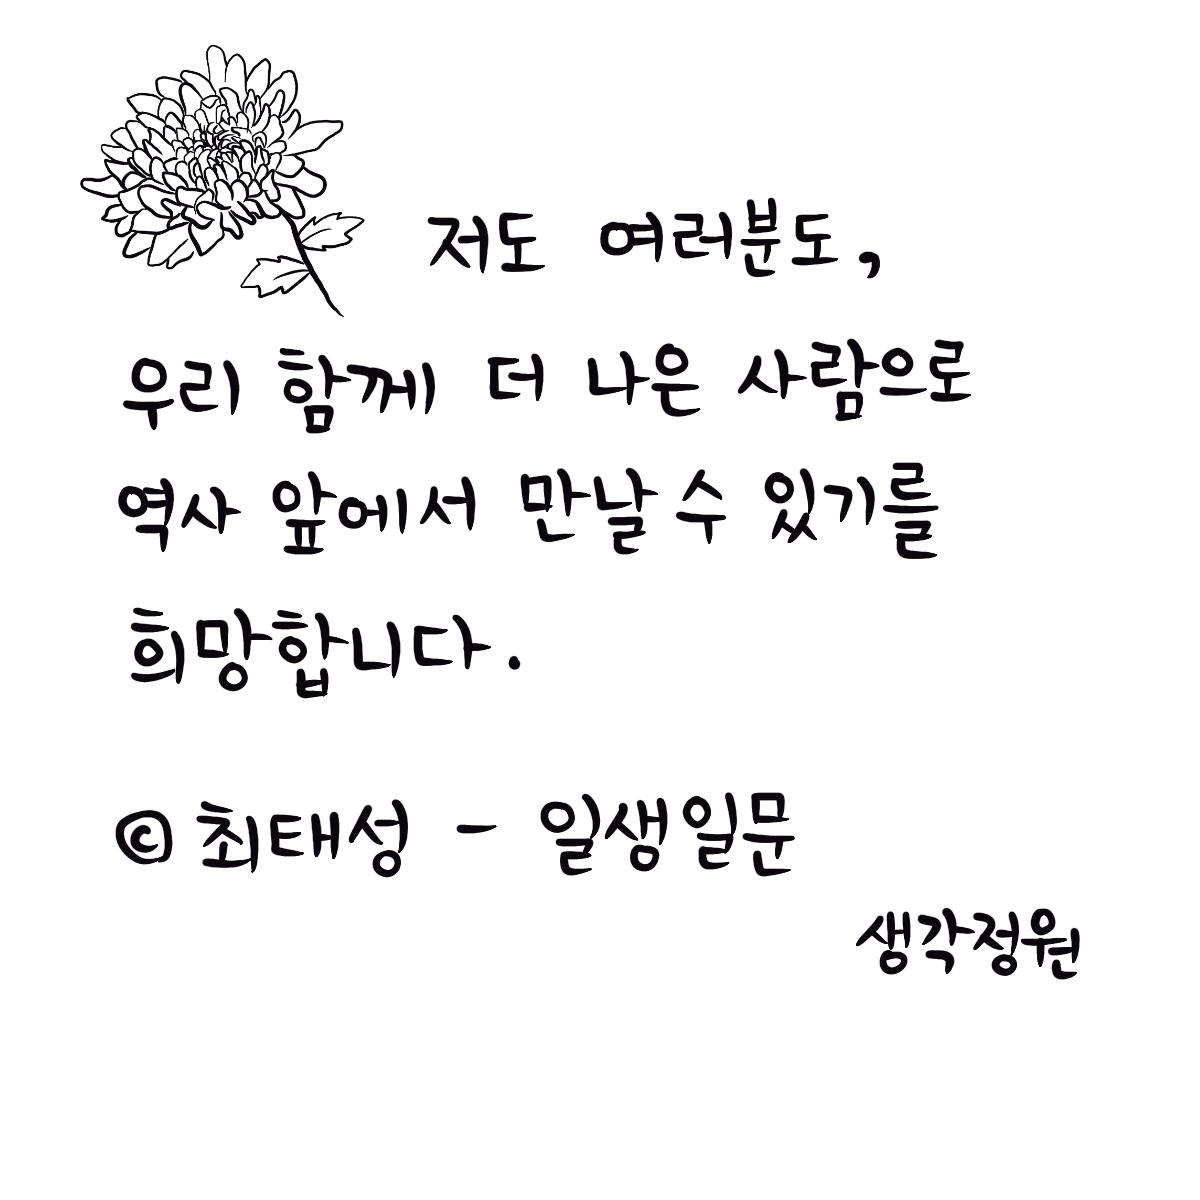 저도 여러분도,
우리 함께 더 나은 사람으로
역사 앞에서 만날 수 있기를
희망합니다.
© 최태성 - 일생일문
생각정원